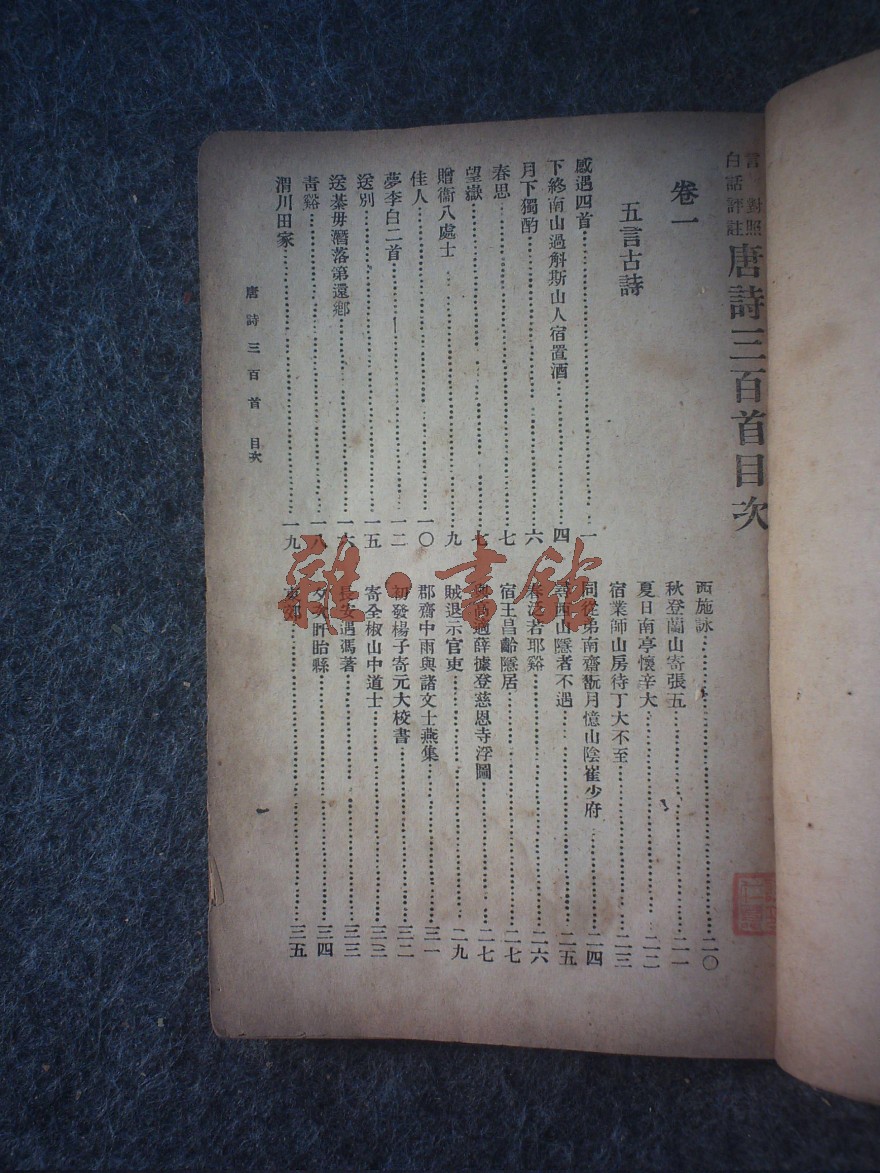 言 對照
白話評註
唐詩三百首目次
卷一
五言古詩
感遇四首 一
下終南山過斛斯山人宿置酒 四
月下獨酌 六
春思 七
望嶽 七
贈衞八處士 九
佳人 一〇
夢李白二首 一二
送別 一五
送綦毋潛落第還鄉 一六
靑谿 一八
渭川田家 一九
西施詠 二〇
秋登蘭山寄張五 二一
夏日南亭懷辛大 二二
宿業師山房待丁大不至 二三
同從弟南齋翫月憶山陰崔少府 二四
尋西山隱者不遇 二五
春泛若耶谿 二六
宿王昌齡隱居 二七
與高適薛據登慈恩寺浮圖 二七
賊退示官吏 二九
郡齋中雨與諸文士燕集 三一
初發楊子寄元大校書 三二
寄全椒山中道士 三三
長安遇馮著 三三
夕次盱眙縣 三四
東郊 三五
唐詩三百首 目次
雜·書館